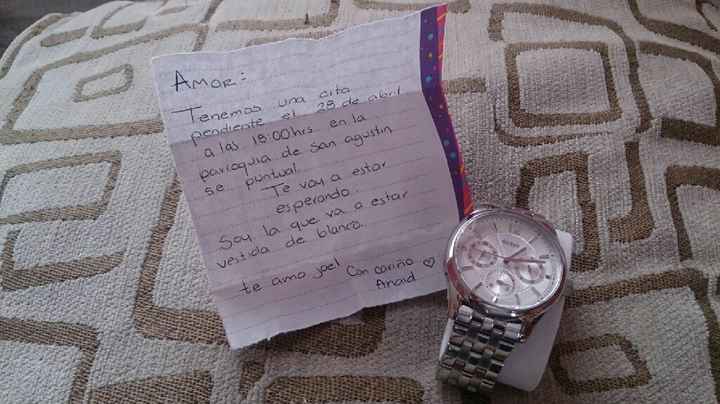 AMOR:
Tenemos una cita
pendiente el 28 de abril
a las 18:00 hrs en la
parroquia de San agustin
se puntual.
Te voy a estar
esperando.
Soy la que va a estar
vestida de blanco.
te amo joel
Con cariño ♡
Anaid